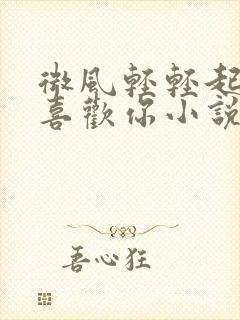 微風輕輕起
喜歡你小說
吾心狂